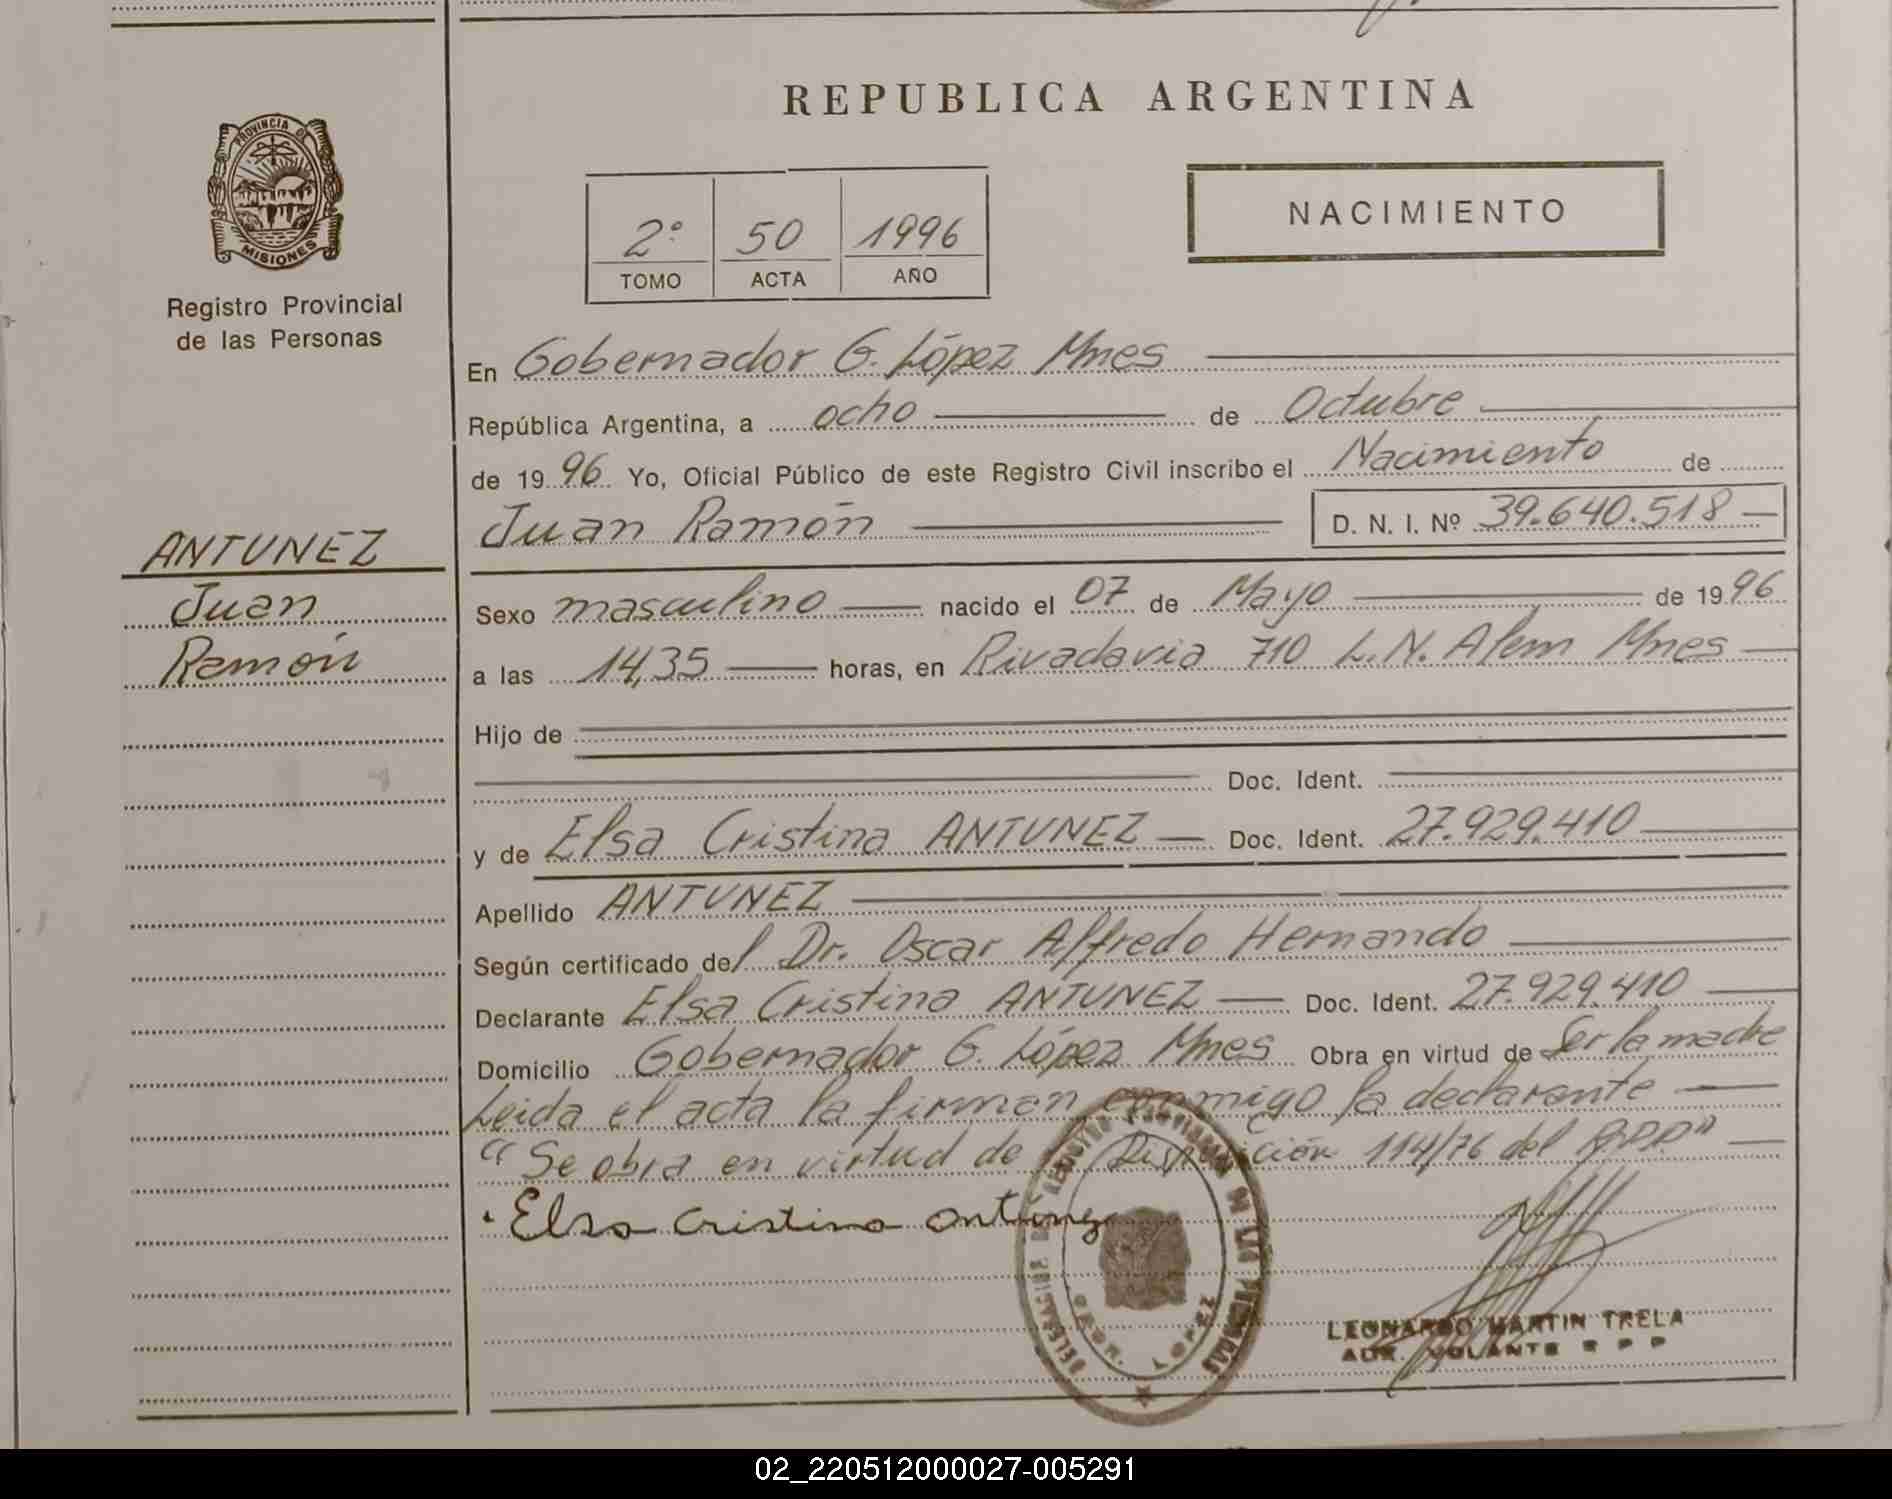 REPUBLICA ARGENTINA
PROVINCIA DE
MISIONES
Registro Provincial
de las Personas
2° 50 1996
TOMO ACTA AÑO
NACIMIENTO
En Gobernador G. López Mnes
República Argentina, a ocho de Octubre
de 1996 Yo, Oficial Público de este Registro Civil inscribo el Nacimiento de
Juan Ramón D. N. I. Nº 39.640.518
ANTUNEZ
Juan
Ramón
Sexo masculino nacido el 07 de Mayo de 1996
a las 14,35 horas, en Rivadavia 710 L.N. Alem Mnes
Hijo de
Doc. Ident.
y de Elsa Cristina ANTUNEZ Doc. Ident. 27.929.410
Apellido ANTUNEZ
Según certificado del Dr. Oscar Alfredo Hernando
Declarante Elsa Cristina ANTUNEZ Doc. Ident. 27.929.410
Domicilio Gobernador G. López Mnes Obra en virtud de Ser la madre
Leida el acta la firman conmigo la declarante
"Se obra en virtud de Disposición 114/76 del R.P.P."
Elsa Cristina Antunez
DELEGACION DEL REGISTRO PROVINCIAL DE LAS PERSONAS
LOPEZ
LEONARDO MARTIN TRELA
AUX. VOLANTE R P P
02_220512000027-005291